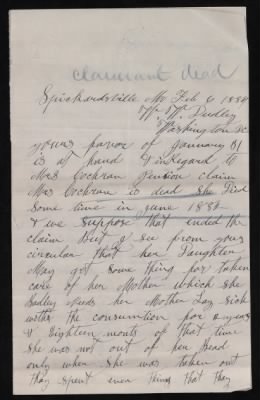 claimant dead
Spickardsville Mo Feb 6 1884
W. W. Dudley
Washington DC
yours favor of January 31
is at hand & in regard to
Mrs Cochran Pension claim
Mrs Cochran is dead She Died
some time in june 188
& we suppose that ended the
claim But I see from your
circular that her Daughter
May get some thing for taken
care of her Mother which she
Badley Needs her Mother Lay Sick
with the consumtion for 2 years
& Eighteen monts of that time
she was not out of her Bead
only when she was taken out
thay spent even thing that thay